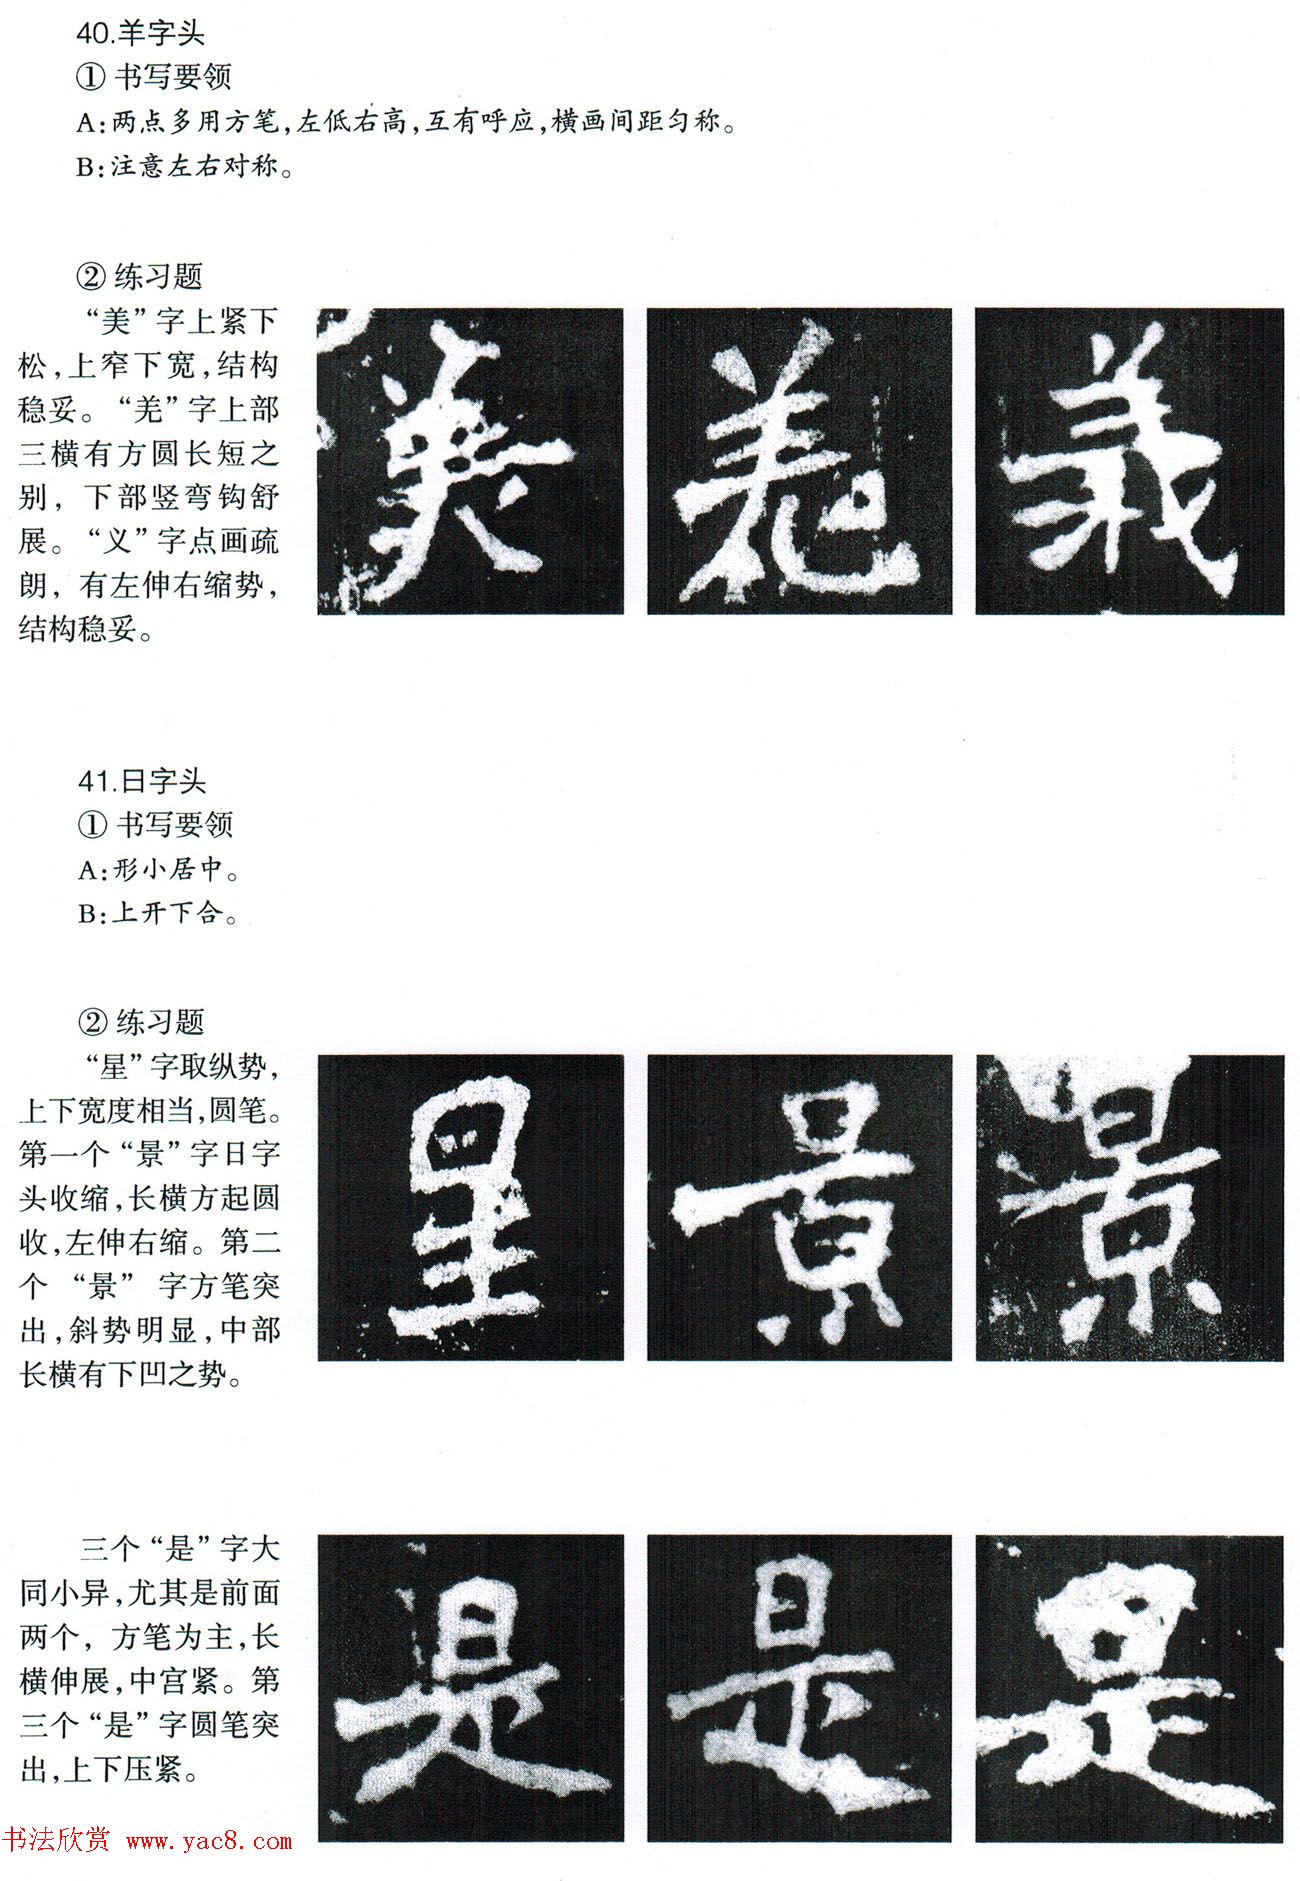 40.羊字头
① 书写要领
A:两点多用方笔,左低右高,互有呼应,横画间距匀称。
B:注意左右对称。
② 练习题
“美”字上紧下
松,上窄下宽,结构
稳妥。“羌”字上部
三横有方圆长短之
别,下部竖弯钩舒
展。“义”字点画疏
朗,有左伸右缩势,
结构稳妥。
美 羌 義
41.日字头
① 书写要领
A:形小居中。
B:上开下合。
② 练习题
“星”字取纵势,
上下宽度相当,圆笔。
第一个“景”字日字
头收缩,长横方起圆
收,左伸右缩。第二
个“景”字方笔突
出,斜势明显,中部
长横有下凹之势。
星 景 景
三个“是”字大
同小异,尤其是前面
两个,方笔为主,长
横伸展,中宫紧。第
三个“是”字圆笔突
出,上下压紧。
是 是 是
书法欣赏 www.yac8.com